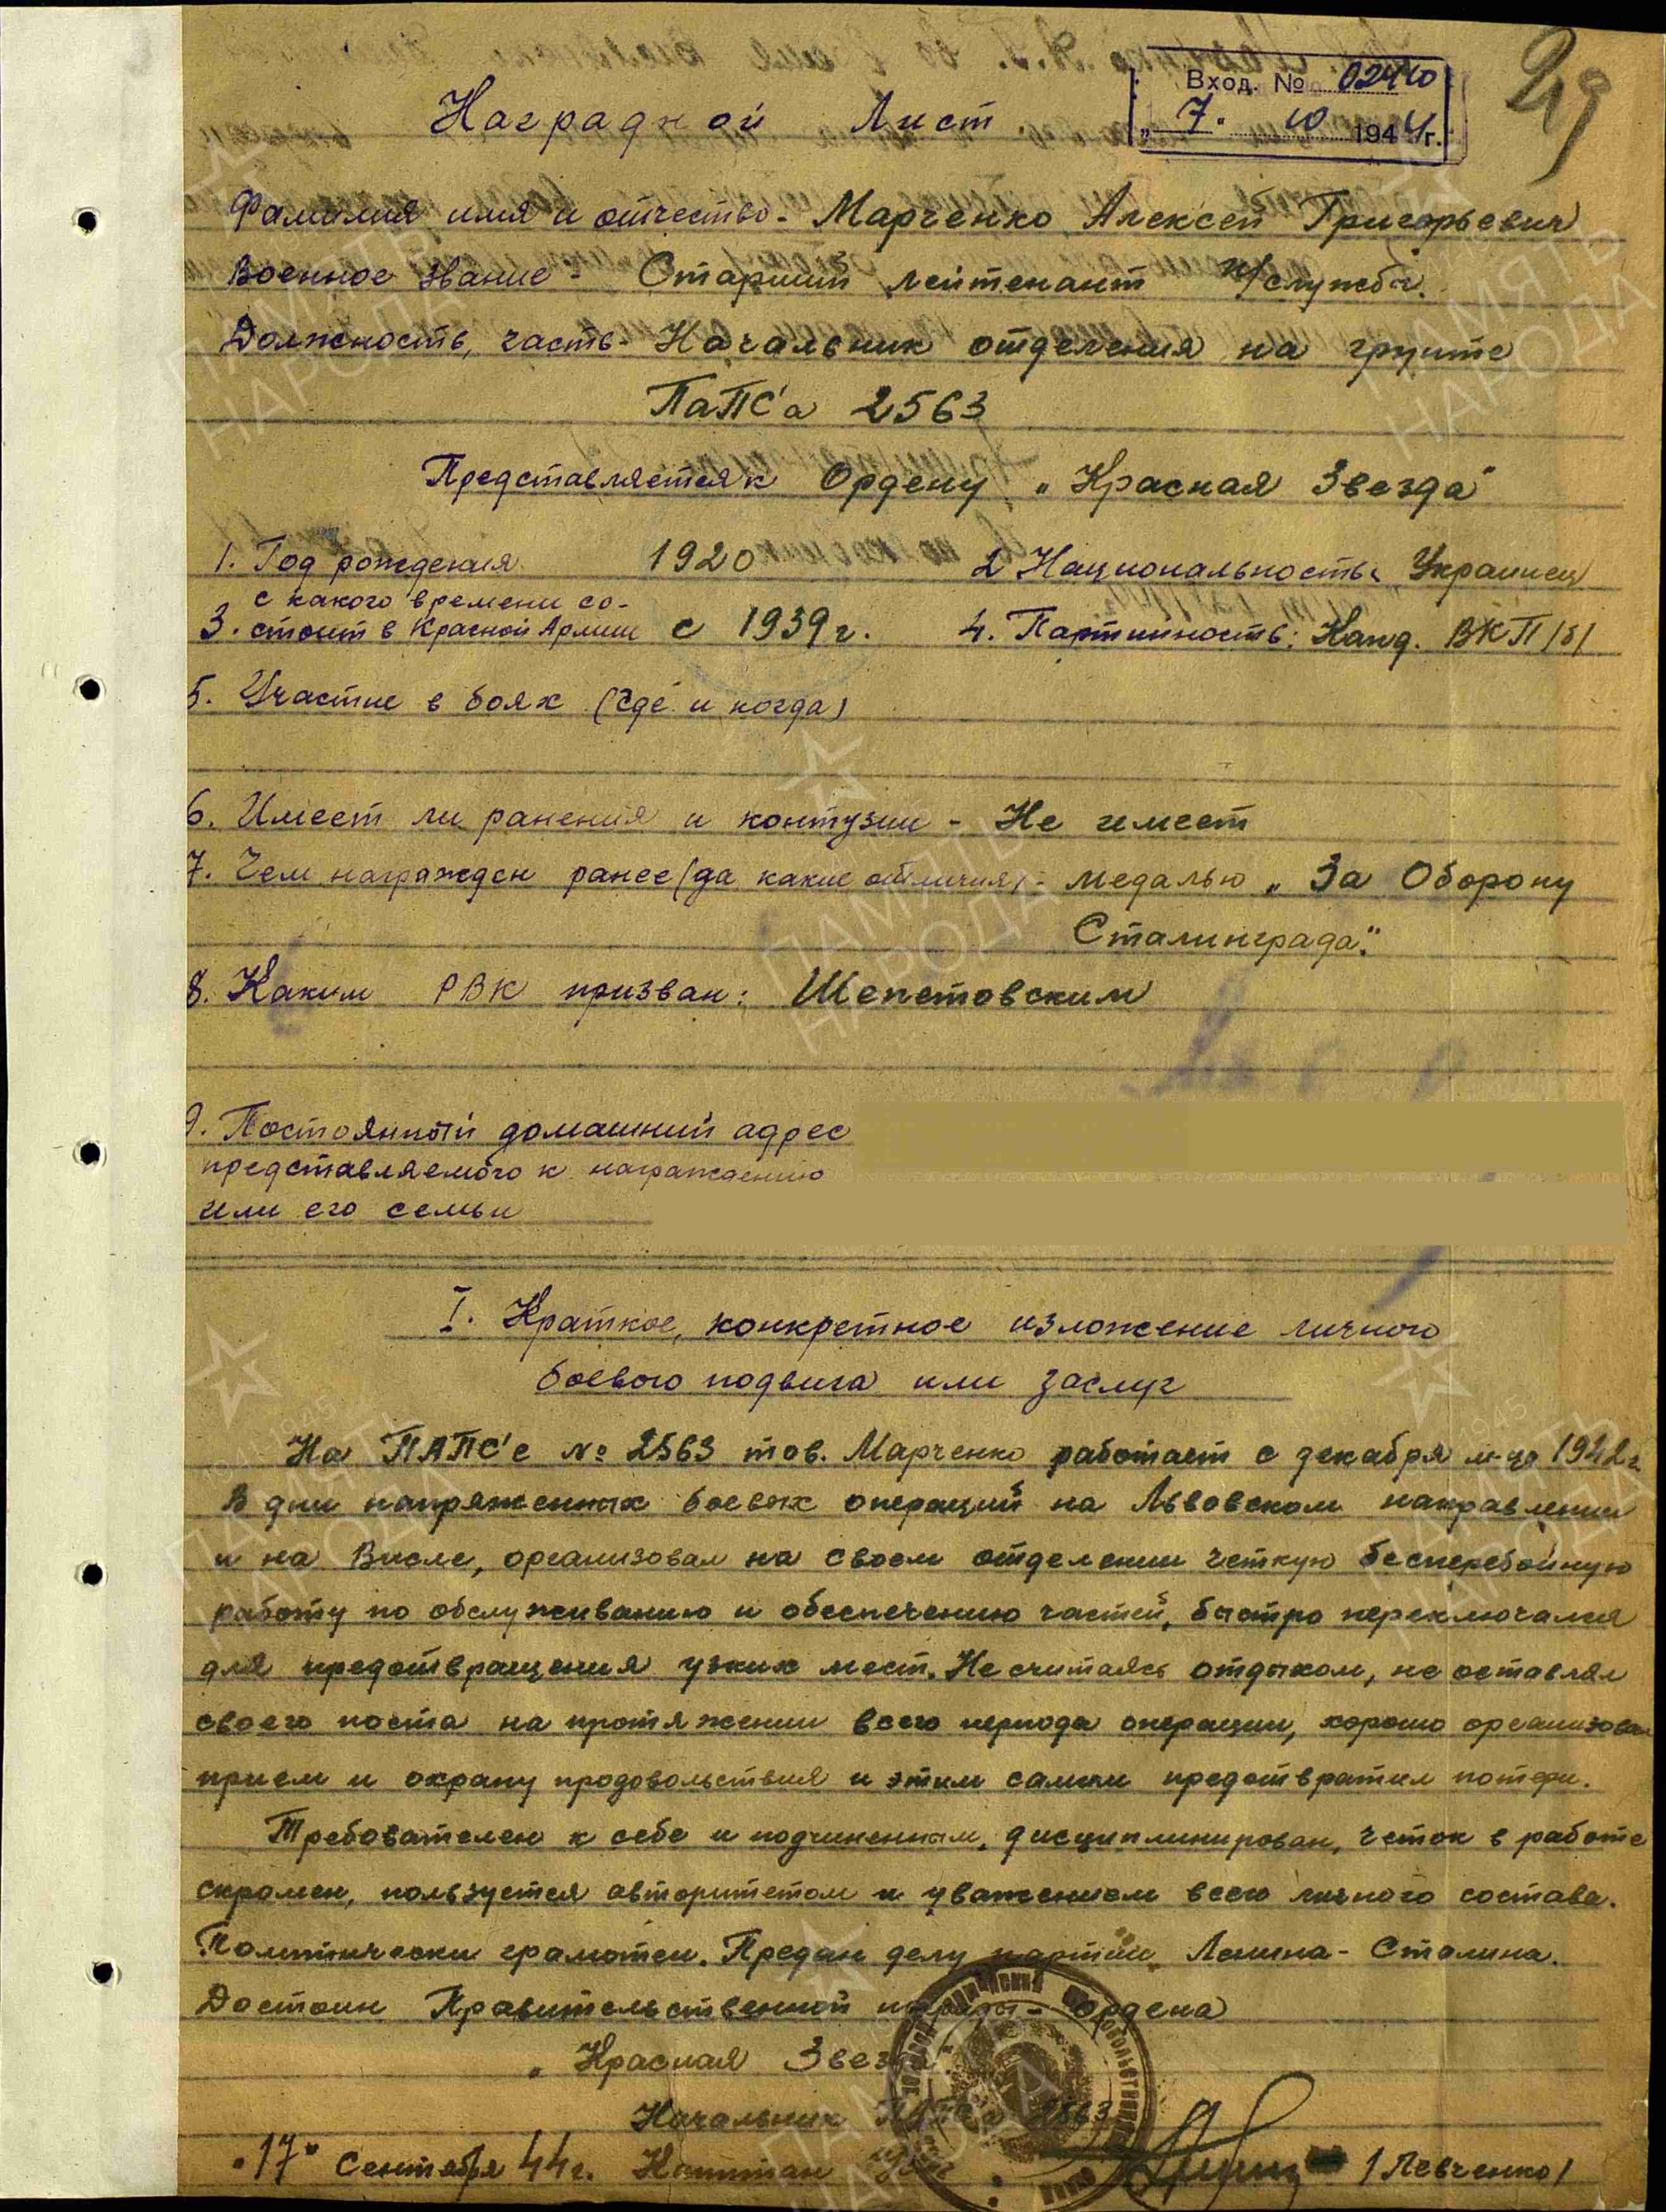 29
Вход. № 02440
„7" 10 1944 г.
Наградной Лист
Фамилия имя и отчество - Марченко Алексей Григорьевич
Военное звание - Старший лейтенант и/службы.
Должность, часть - Начальник отделения на грунте
ПаПС'а 2563
Представляется к Ордену „Красная Звезда"
1. Год рождения 1920 2 Национальность Украинец
с какого времени со-
3. стоит в Красной Армии с 1939 г. 4. Партийность: Канд. ВКП/б/
5. Участие в боях (где и когда)
6. Имеет ли ранения и контузии - Не имеет
7. Чем награжден ранее (за какие отличия) - медалью „За Оборону
Сталинграда".
8. Каким РВК призван: Шепетовским
9. Постоянный домашний адрес
представляемого к награждению
или его семьи
I. Краткое, конкретное изложение личного
боевого подвига или заслуг
На ПАПС'е № 2563 тов. Марченко работает с декабря м-ца 1942 г.
В дни напряженных боевых операций на Львовском направлении
и на Висле, организовал на своем отделении четкую бесперебойную
работу по обслуживанию и обеспечению частей, быстро переключался
для предотвращения узких мест. Не считаясь отдыхом, не оставлял
своего поста на протяжении всего периода операции, хорошо организовал
прием и охрану продовольствия и этим самым предотвратил потери.
Требователен к себе и подчиненным, дисциплинирован, четок в работе
скромен, пользуется авторитетом и уважением всего личного состава.
Политически грамотен. Предан делу партии Ленина - Сталина.
Достоин Правительственной награды - ордена
„Красная Звезда"
Начальник ПАПС'а 2563
„17" Сентября 44 г. Капитан /Левченко/
ПАМЯТЬ
НАРОДА